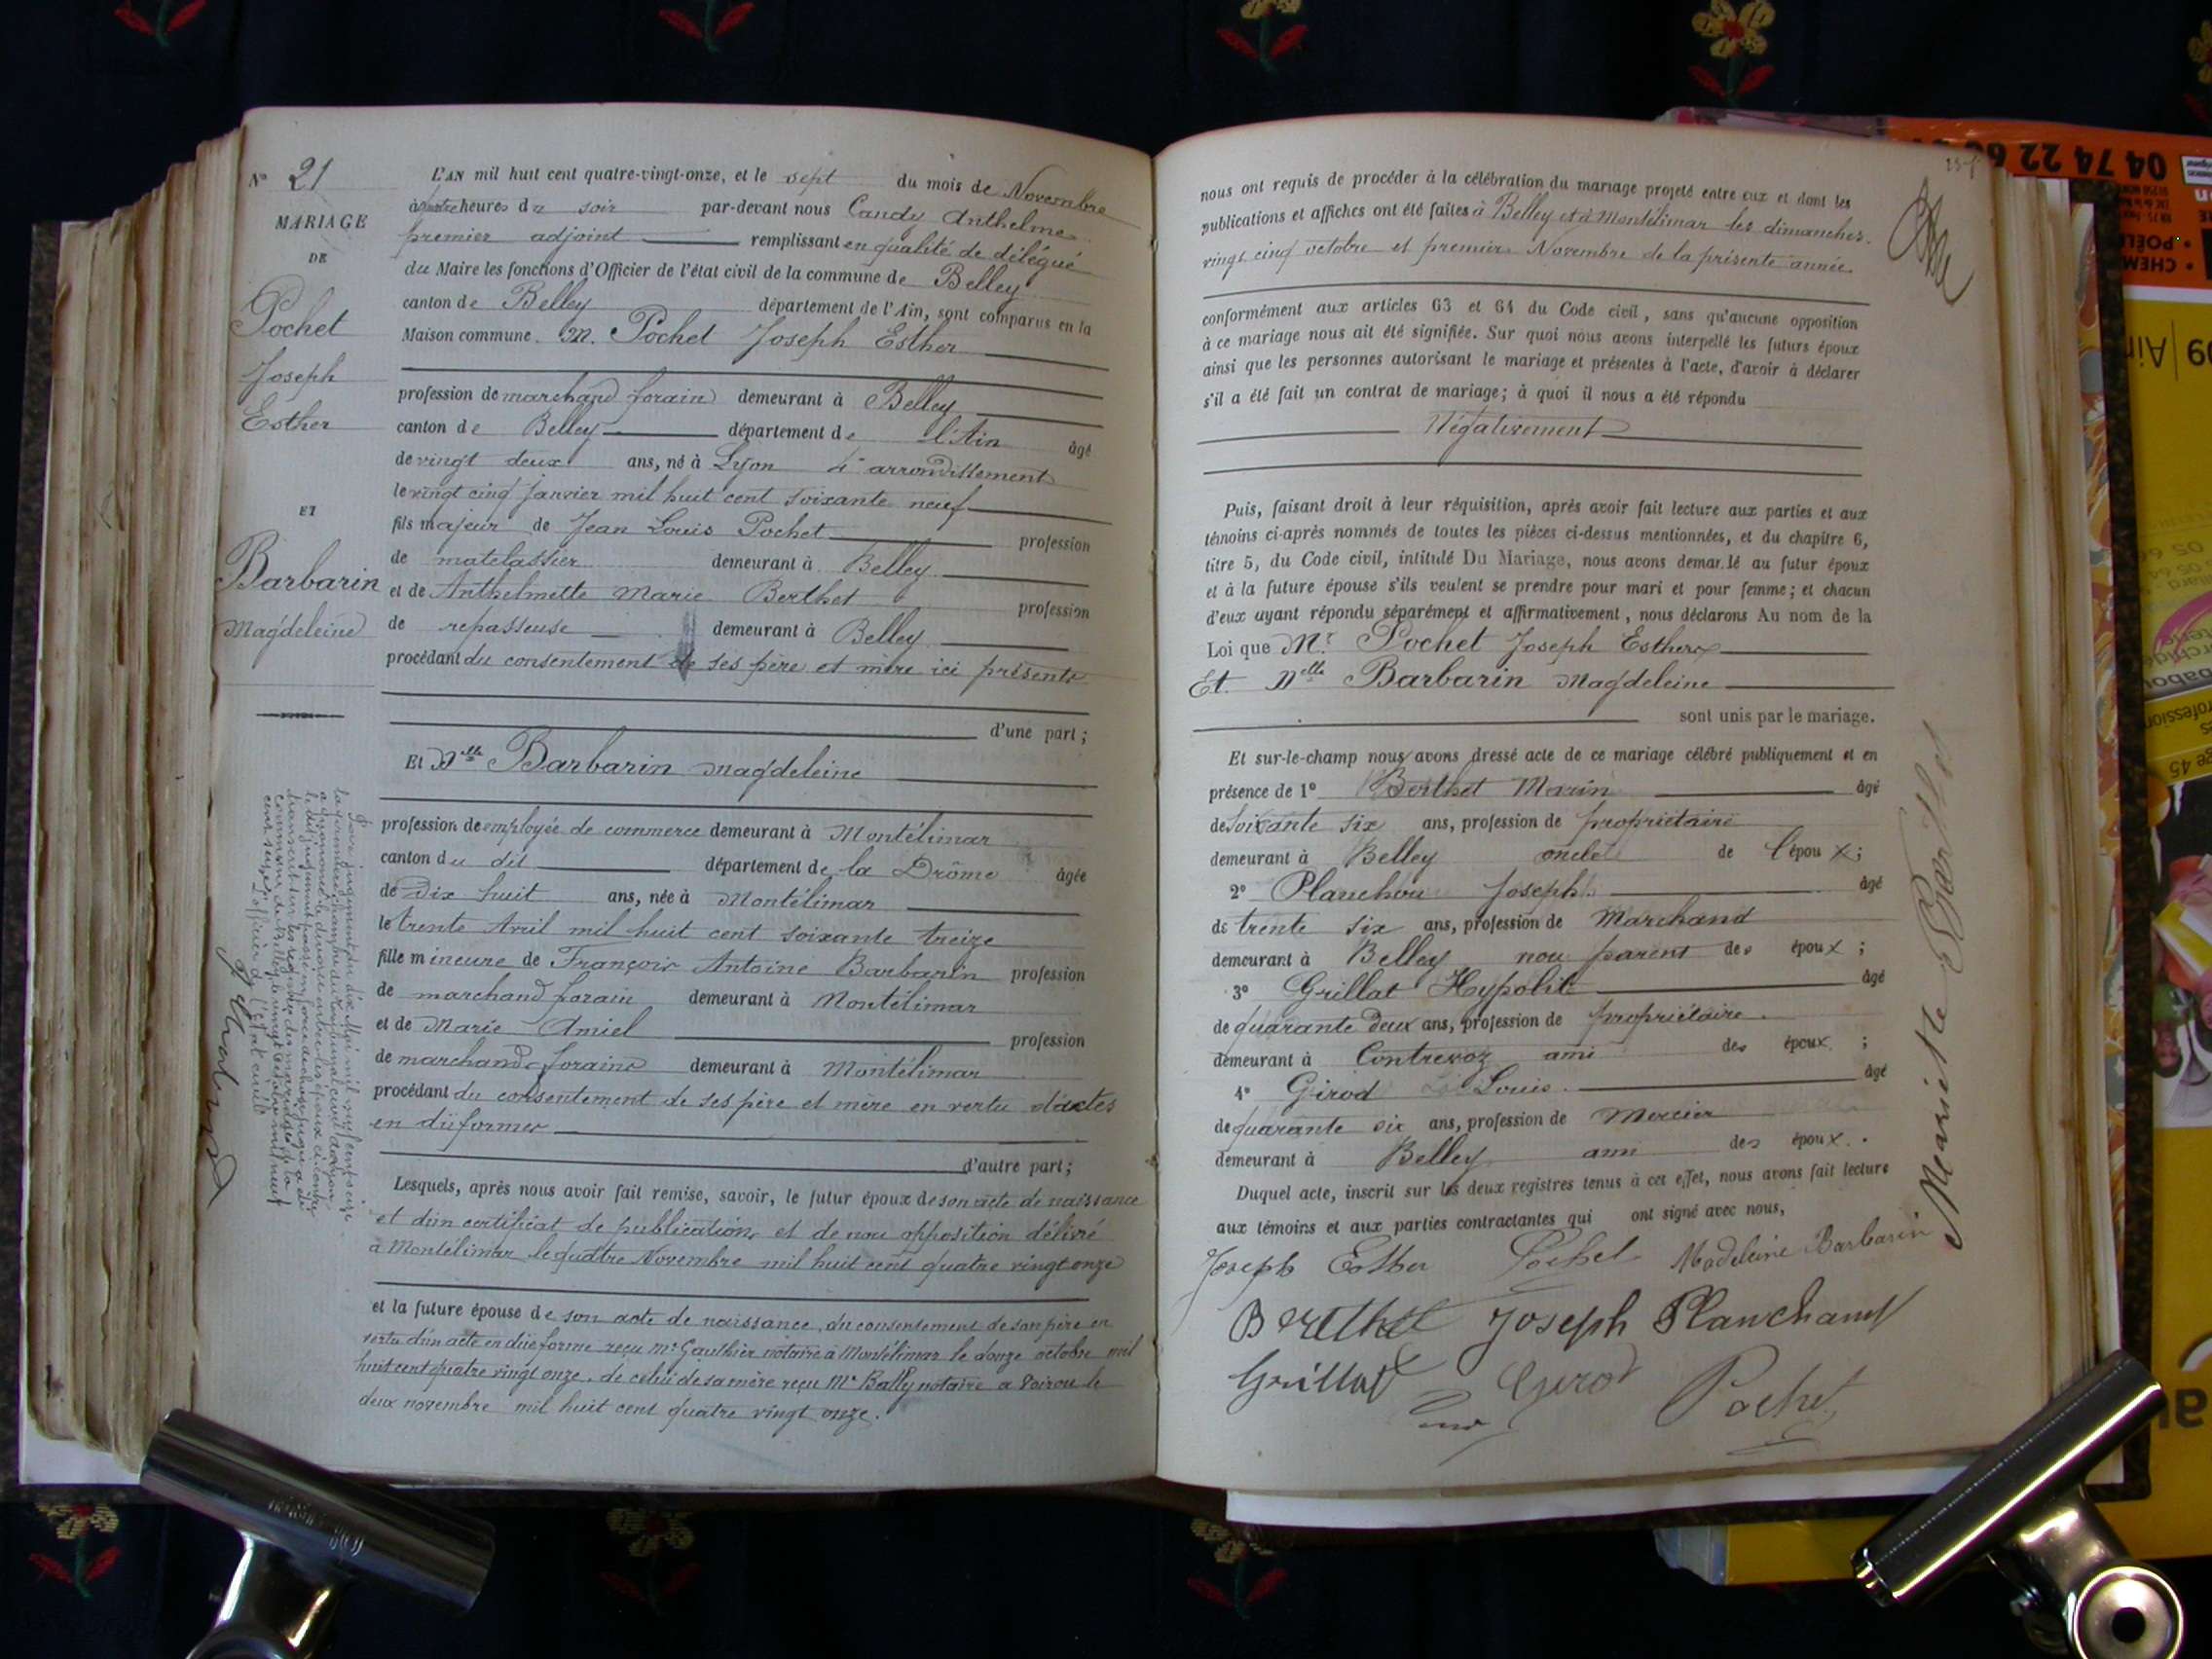 N° 21
MARIAGE
DE
Pochet
Joseph
Esther
ET
Barbarin
Magdeleine
L'AN mil huit cent quatre-vingt-onze, et le sept du mois de Novembre
à quatre heures du soir par-devant nous Candy Anthelme
premier adjoint remplissant en qualité de délégué
du Maire les fonctions d'Officier de l'état civil de la commune de Belley
canton de Belley département de l'Ain, sont comparus en la
Maison commune. M. Pochet Joseph Esther
profession de marchand forain demeurant à Belley
canton de Belley département de l'Ain âgé
de vingt deux ans, né à Lyon 4e arrondissement
le vingt cinq janvier mil huit cent soixante neuf
fils majeur de Jean Louis Pochet profession
de matelassier demeurant à Belley
et de Anthelmette Marie Berthet profession
de repasseuse demeurant à Belley
procédant du consentement de ses père et mère ici présents
d'une part;
Et Melle Barbarin Magdeleine
profession de employée de commerce demeurant à Montélimar
canton du dit département de la Drôme âgée
de dix huit ans, née à Montélimar
le trente Avril mil huit cent soixante treize
fille mineure de François Antoine Barbarin profession
de marchand forain demeurant à Montélimar
et de Marie Amiel profession
de marchande foraine demeurant à Montélimar
procédant du consentement de ses père et mère en vertu d'actes
en dûformes
d'autre part;
Lesquels, après nous avoir fait remise, savoir, le futur époux de son acte de naissance
et d'un certificat de publication, et de non opposition délivré
à Montélimar le quatre Novembre mil huit cent quatre vingt onze
et la future épouse de son acte de naissance, du consentement de son père en
vertu d'un acte en dûe forme reçu Me Gaulthier notaire à Montélimar le douze octobre mil
huit cent quatre vingt onze, de celui de sa mère reçu Me Bally notaire a Voirou le
deux novembre mil huit cent quatre vingt onze.
nous ont requis de procéder à la célébration du mariage projeté entre eux et dont les
publications et affiches ont été faites à Belley et à Montélimar les dimanches
vingt cinq octobre et premier Novembre de la présente année
conformément aux articles 63 et 64 du Code civil, sans qu'aucune opposition
à ce mariage nous ait été signifiée. Sur quoi nous avons interpellé les futurs époux
ainsi que les personnes autorisant le mariage et présentes à l'acte, d'avoir à déclarer
s'il a été fait un contrat de mariage; à quoi il nous a été répondu
Négativement
Puis, faisant droit à leur réquisition, après avoir fait lecture aux parties et aux
témoins ci-après nommés de toutes les pièces ci-dessus mentionnées, et du chapitre 6,
titre 5, du Code civil, intitulé Du Mariage, nous avons demandé au futur époux
et à la future épouse s'ils veulent se prendre pour mari et pour femme; et chacun
d'eux ayant répondu séparément et affirmativement, nous déclarons Au nom de la
Loi que Mr. Pochet Joseph Esther
Et Melle Barbarin Magdeleine
sont unis par le mariage.
Et sur-le-champ nous avons dressé acte de ce mariage célébré publiquement et en
présence de 1° Berthet Marin âgé
de soixante six ans, profession de propriétaire
demeurant à Belley oncle de l'époux;
2° Planchou Joseph âgé
de trente six ans, profession de Marchand
demeurant à Belley non parent des époux;
3° Grillat Hypolite âgé
de quarante deux ans, profession de propriétaire
demeurant à Contrevoz ami des époux;
4° Girod Louis âgé
de quarante six ans, profession de Mercier
demeurant à Belley ami des époux.
Duquel acte, inscrit sur les deux registres tenus à cet effet, nous avons fait lecture
aux témoins et aux parties contractantes qui ont signé avec nous,
Joseph Esther Pochet Madeleine Barbarin
Berthet Joseph Planchand
Grillat Girod Pochet
Mariette Berthet
04 74 22 60